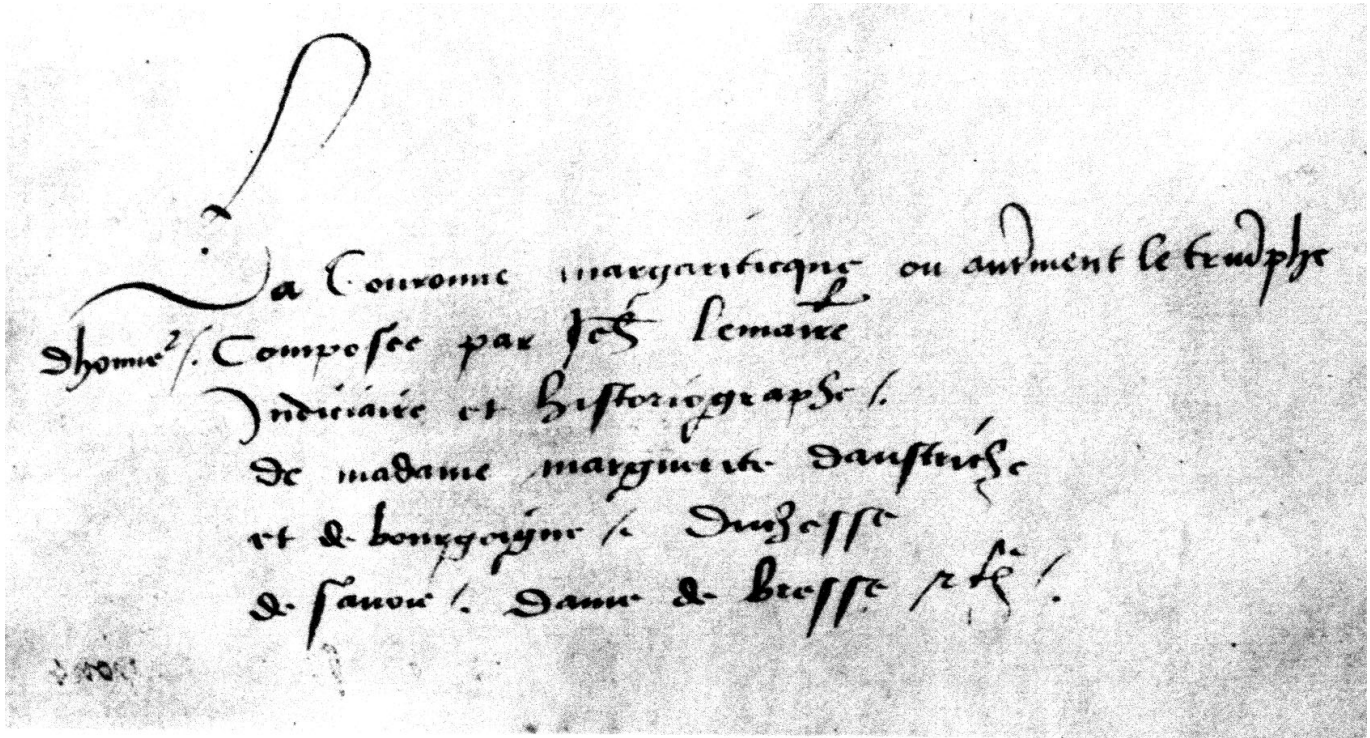 La Couronne margariticque ou autrement le triumphe
dhonneur /. Composee par Jeh Lemaire
Indiciaire et historiographe /.
de madame marguerite daustriche
et de bourgoigne /. Duchesse
de savoie /. Dame de bresse